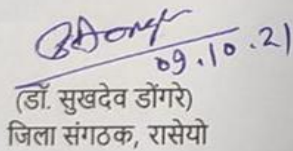 09.10.21
(डॉ. सुखदेव डोंगरे)
जिला संगठक, रासेयो